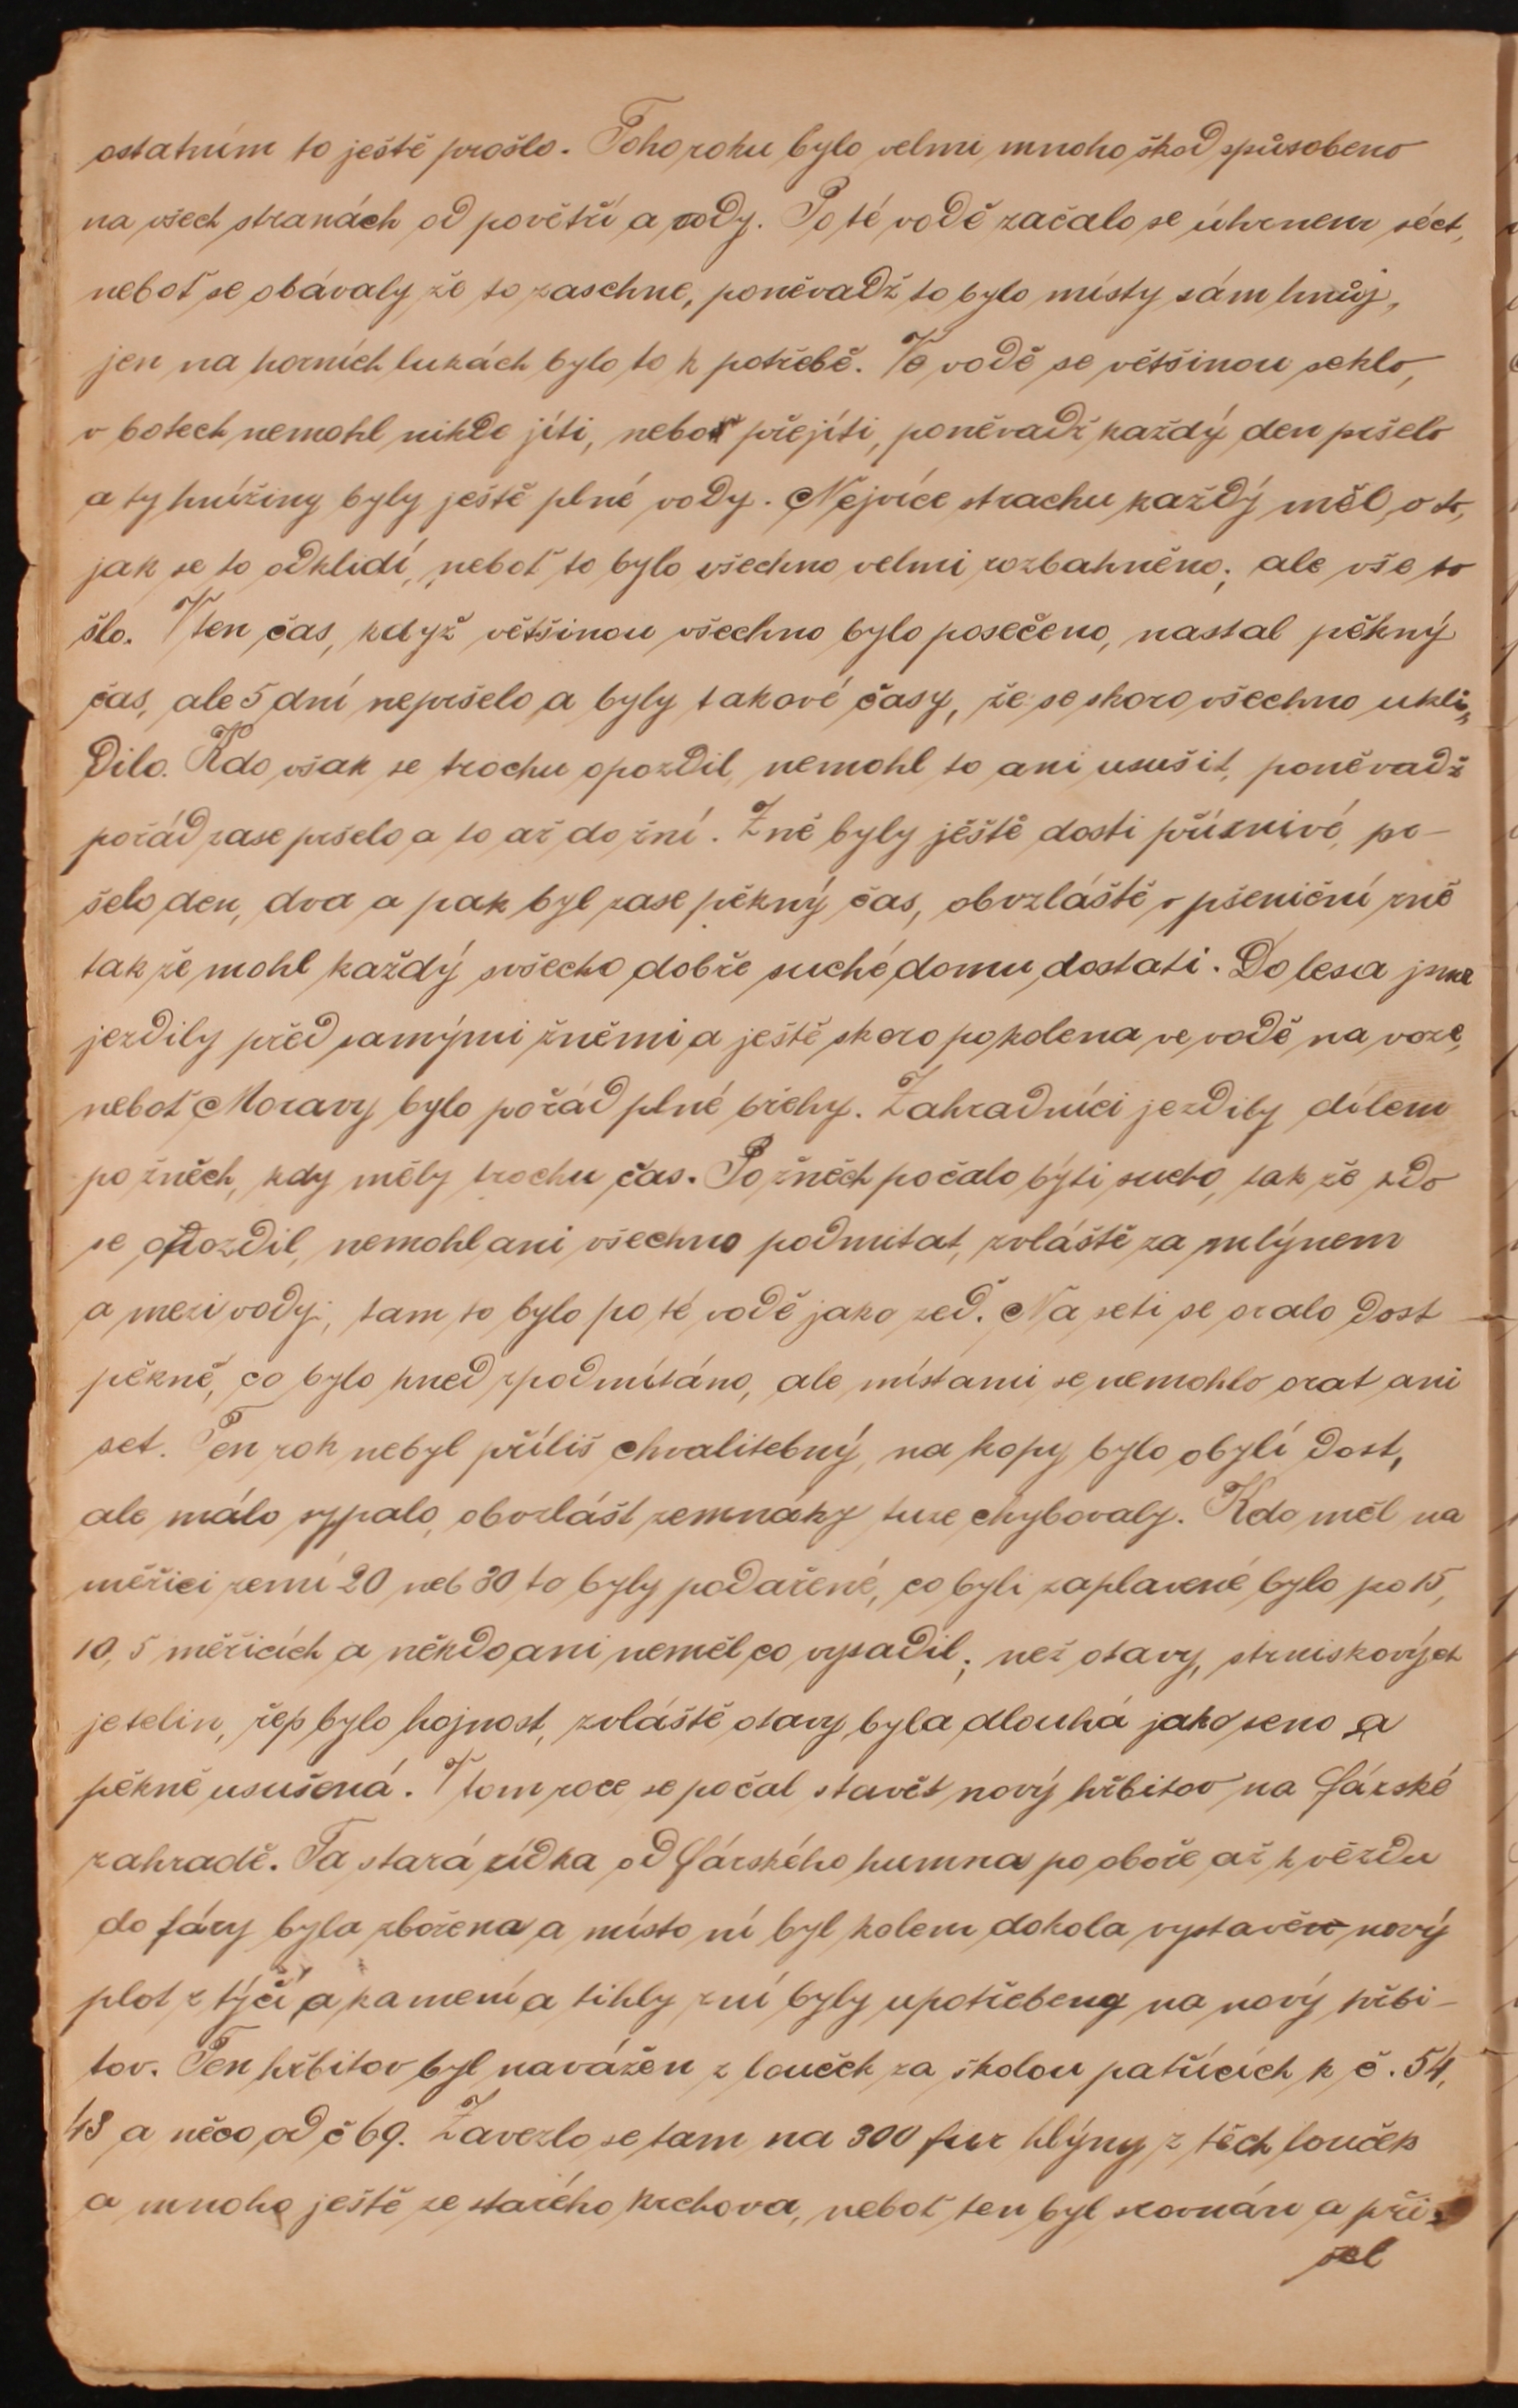 ostatním to ještě prošlo. Toho roku bylo velmi mnoho škod spůsobeno
na všech stranách od povětří a vody. Po té vodě začalo se úhrnem séct,
neboť se obávaly že to zaschne, poněvadž to bylo místy sám hnůj,
jen na horních lukách bylo to k potřebě. Ve vodě se většinou seklo,
v botech nemohl nikde jíti, neboť přejíti, poněvadž každý den pršelo
a ty hnížiny byly ještě plné vody. Nejvíce strachu každý měl o to,
jak se to odklidí, neboť to bylo všechno velmi rozbahněno, ale vše to
šlo. V ten čas, když většinou všechno bylo posečeno, nastal pěkný
čas, ale 5 dní nepršelo a byly takové časy, že se skoro všechno ukli„
dilo. Kdo však se trochu opozdil, nemohl to ani usušit, poněvadž
pořád zase pršelo a to až do žní. Žně byly ještě dosti příznivé, pr-
šelo den, dva a pak byl zase pěkný čas, obvzláště v pšeniční žně
tak že mohl každý všecko dobře suché domu dostati. Do lesa jsme
jezdily před samými žněmi a ještě skoro po kolena ve vodě na voze,
neboť Moravy bylo pořád plné břehy. Zahradníci jezdily dílem
po žněch, kdy měly trochu čas. Po žněch počalo býti sucho, tak že kdo
se opozdil, nemohl ani všechno podmítat, zvláště za mlýnem
a mezi vody, tam to bylo po té vodě jako zeď. Na seti se oralo dost
pěkně, co bylo hned zpodmítáno, ale místami se nemohlo orat ani
set. Ten rok nebyl příliš chvalitebný, na kopy bylo obylí dost,
ale málo sypalo, obvzlášt zemnáky tuze chybovaly. Kdo měl na
měřici zemí 20 neb 30 to byly podařené, co byli zaplavené bylo po 15,
10, 5 měřicích a někdo ani neměl co vysadil; než otavy, strniskových
jetelin, řep bylo hojnost, zvláště otavy byla dlouhá jako seno a
pěkně usušená. V tom roce se počal stavět nový hřbitov na fárské
zahradě. Ta stará zídka od fárského humna po oboře až k vězdu
do fáry byla zbořena a místo ní byl kolem dokola vystavěn nový
plot z týčí a kamení a tihly z ní byly upotřebeny na nový hřbi-
tov. Ten hřbitov byl navážen z louček za školou patřících k č. 54,
48 a něco od č 69. Zavezlo se tam na 300 fur hlýny z těch louček
a mnoho ještě ze starého krchova, neboť ten byl srovnán a při-
šel